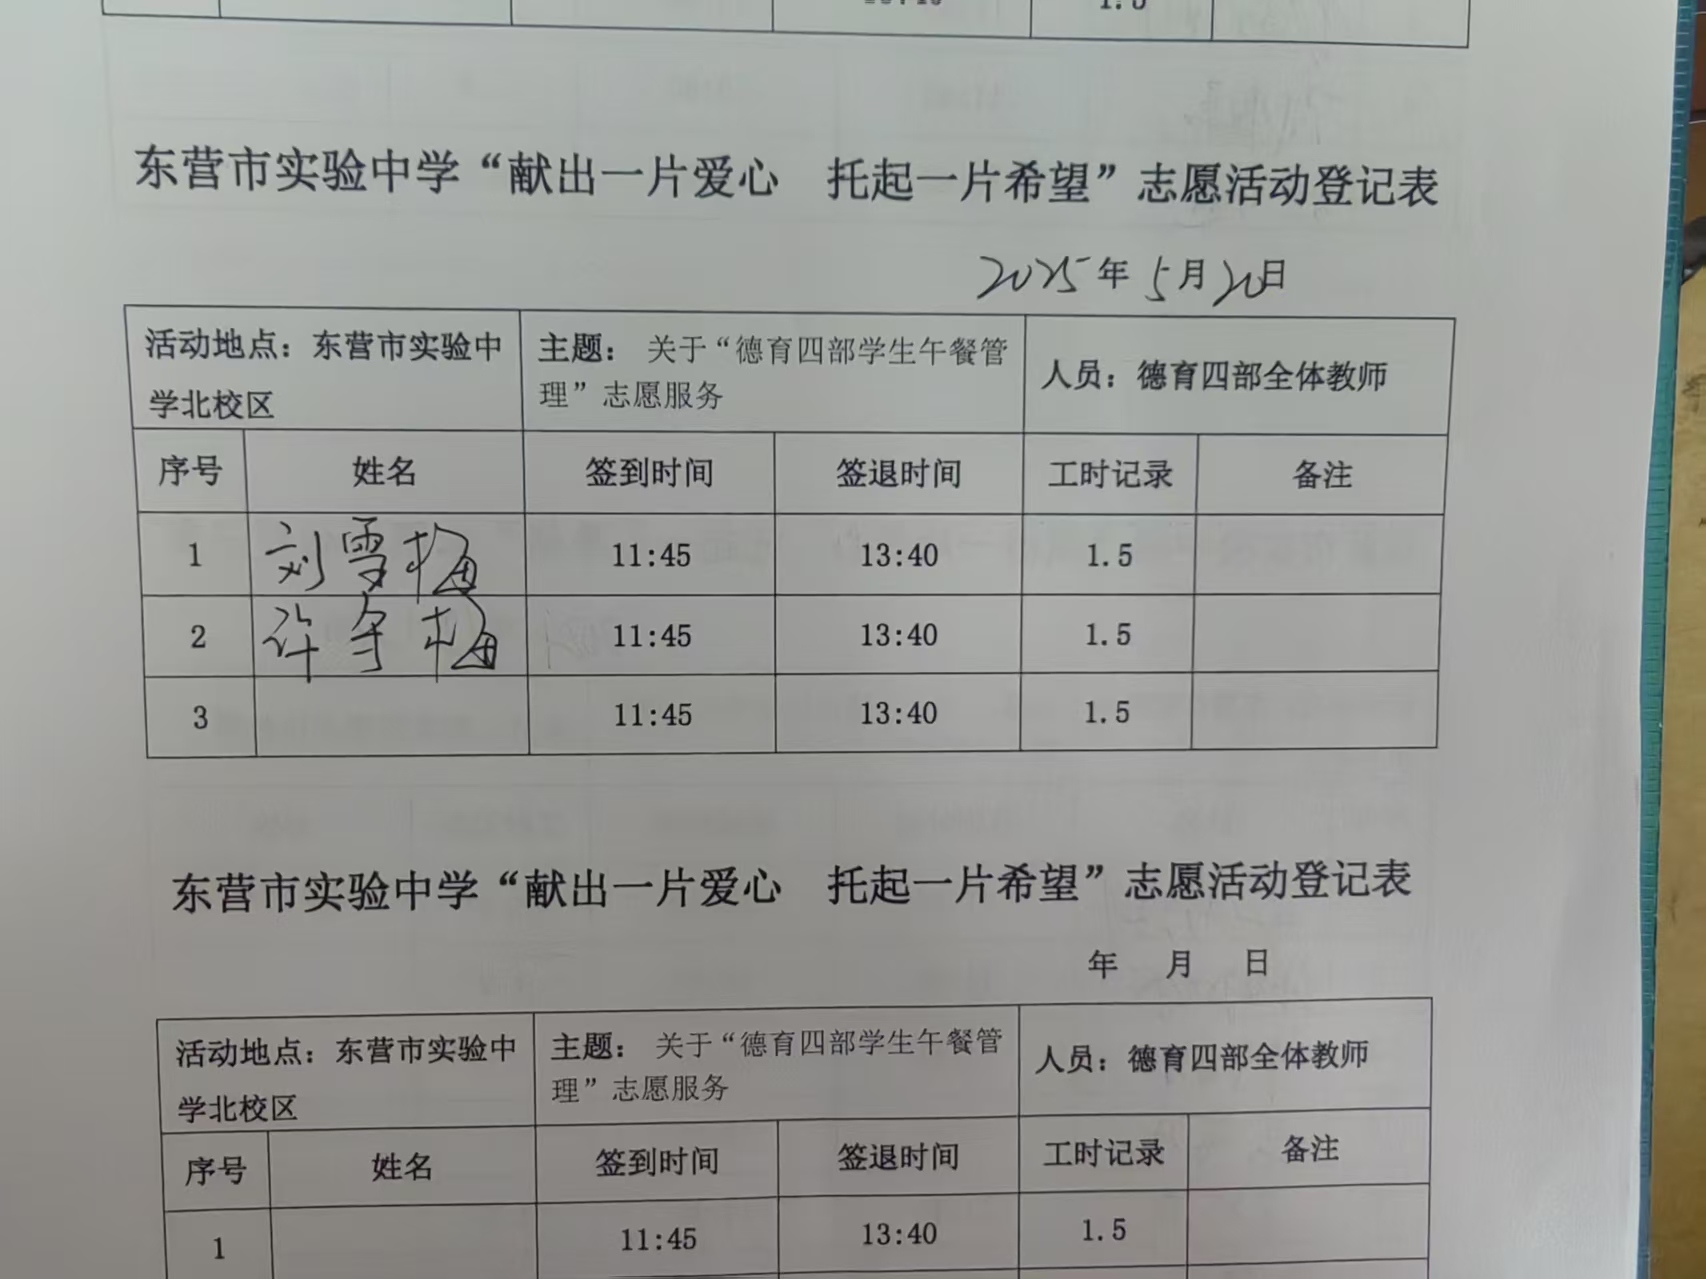 1.5
东营市实验中学“献出一片爱心 托起一片希望”志愿活动登记表
2025年5月20日
活动地点：东营市实验中学北校区 主题：关于“德育四部学生午餐管理”志愿服务 人员：德育四部全体教师
序号 姓名 签到时间 签退时间 工时记录 备注
1 刘雪梅 11:45 13:40 1.5
2 许冬梅 11:45 13:40 1.5
3 11:45 13:40 1.5
东营市实验中学“献出一片爱心 托起一片希望”志愿活动登记表
年 月 日
活动地点：东营市实验中学北校区 主题：关于“德育四部学生午餐管理”志愿服务 人员：德育四部全体教师
序号 姓名 签到时间 签退时间 工时记录 备注
1 11:45 13:40 1.5